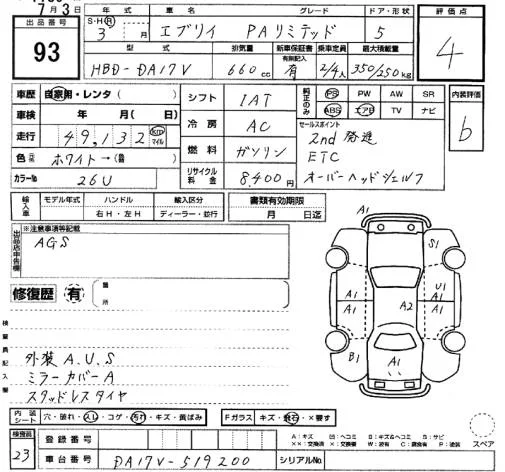 7月3日
出品番号
93
年式 車名 グレード ドア・形状
S・H・R 3年 月 エブリイ PAリミテッド 5
評価点
4
型式 排気量 新車保証書 乗車定員 最大積載量
有無記入
HBD-DA17V 660cc 有 2/4人 350/250kg
車歴 自家用・レンタ( )
車検 年 月( 日)
走行 49,132 km マイル
色 ホワイト→( )
カラーNo 26U
シフト IAT
冷房 AC
燃料 ガソリン
リサイクル料金 8,400円
純正のみ PS PW AW SR
ABS エアB TV ナビ
セールスポイント
2nd発進
ETC
オーバーヘッドシェルフ
内装評価
b
輸入車 モデル年式 ハンドル 輸入区分
右H・左H ディーラー・並行
書類有効期限
月 日迄
出品店申告欄
※注意事項等記載
AGS
修復歴 有 箇所
検査員記入欄
外装 A.U.S
ミラーカバーA
スタッドレスタイヤ
A1
S1
A1
A1
U1
A1
A2
B1
A1
内装シート 穴・破れ・スレ・コゲ・汚れ・キズ・黄ばみ
Fガラス キズ・飛石・×要す
A:キズ U:ヘコミ B:キズ&ヘコミ S:サビ
××:交換済 ×:交換要 W:波有 C:腐食有 P:塗装
スペア
検査員
23
登録番号
車台番号 DA17V-519200 シリアルNo.